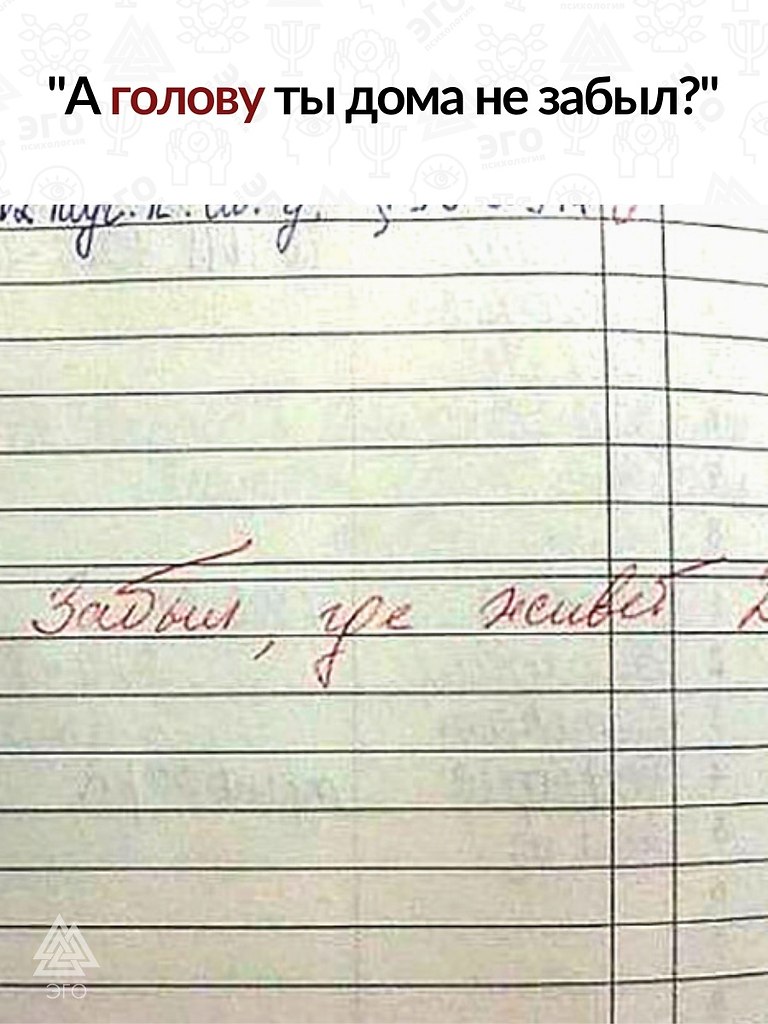 "А голову ты дома не забыл?"
Забыл, где живет
ЭГО